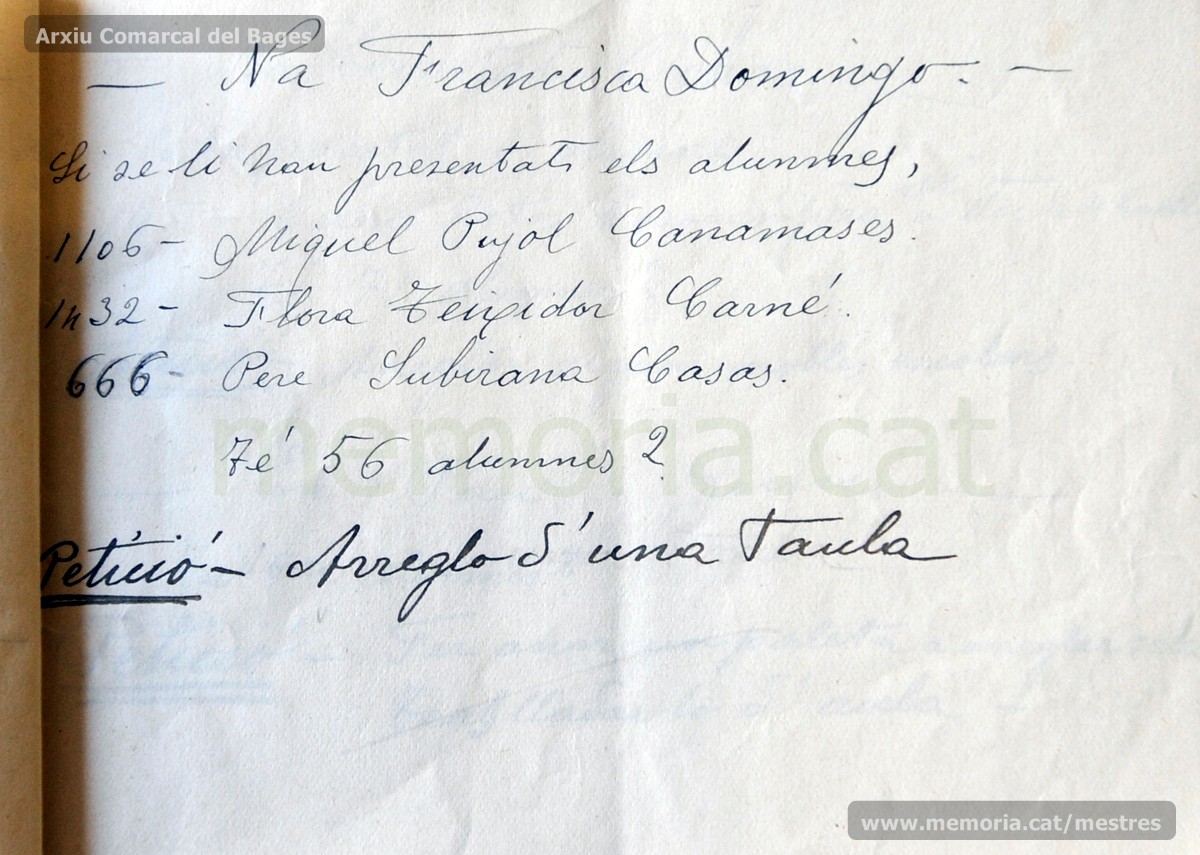 Arxiu Comarcal del Bages
— Na Francisca Domingo. —
Si se li han presentats els alumnes,
1106 - Miquel Pujol Canamases.
1432 - Flora Teixidor Carné.
666 - Pere Subirana Casas.
memoria.cat
Té 56 alumnes?
Petició - Arreglo d'una Taula
www.memoria.cat/mestres